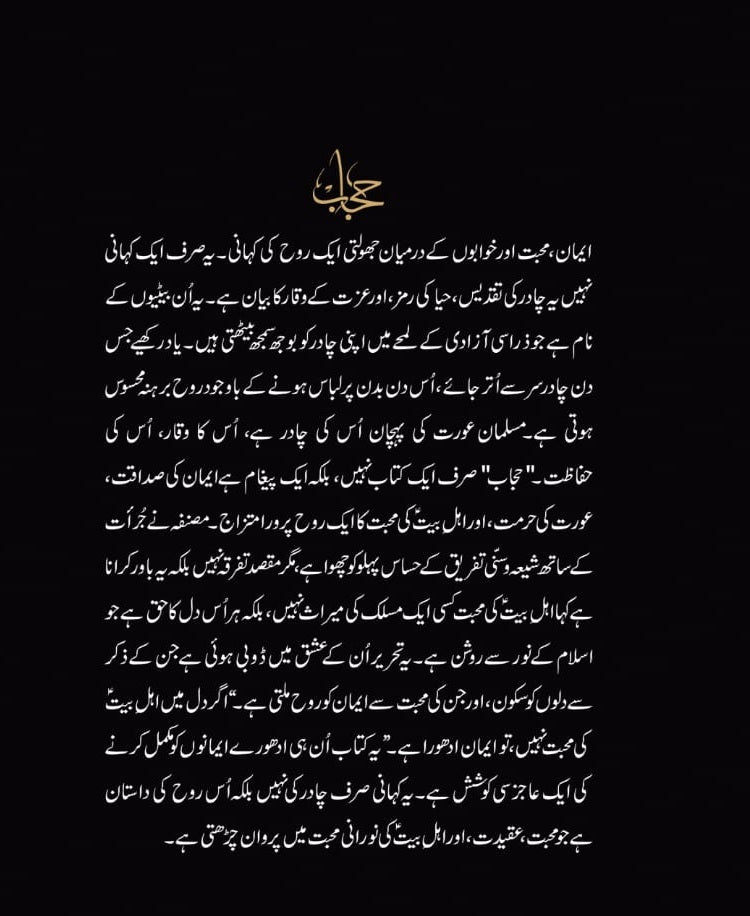 حجاب
ایمان، محبت اور خوابوں کے درمیان جھولتی ایک روح کی کہانی۔ یہ صرف ایک کہانی
نہیں یہ چادر کی تقدیس، حیا کی رمز، اور عزت کے وقار کا بیان ہے۔ یہ اُن بیٹیوں کے
نام ہے جو ذرا سی آزادی کے لمحے میں اپنی چادر کو بوجھ سمجھ بیٹھتی ہیں۔ یاد رکھیے جس
دن چادر سر سے اُتر جائے، اُس دن بدن پر لباس ہونے کے باوجود روح برہنہ محسوس
ہوتی ہے۔ مسلمان عورت کی پہچان اُس کی چادر ہے، اُس کا وقار، اُس کی
حفاظت۔ "حجاب" صرف ایک کتاب نہیں، بلکہ ایک پیغام ہے ایمان کی صداقت،
عورت کی حرمت، اور اہلِ بیتؑ کی محبت کا ایک روح پرور امتزاج۔ مصنفہ نے جُرأت
کے ساتھ شیعہ و سنّی تفریق کے حساس پہلو کو چھوا ہے، مگر مقصد تفرقہ نہیں بلکہ یہ باور کرانا
ہے کہ اہلِ بیتؑ کی محبت کسی ایک مسلک کی میراث نہیں، بلکہ ہر اُس دل کا حق ہے جو
اسلام کے نور سے روشن ہے۔ یہ تحریر اُن کے عشق میں ڈوبی ہوئی ہے جن کے ذکر
سے دلوں کو سکون، اور جن کی محبت سے ایمان کو روح ملتی ہے۔ “اگر دل میں اہلِ بیتؑ
کی محبت نہیں، تو ایمان ادھورا ہے۔” یہ کتاب اُن ہی ادھورے ایمانوں کو مکمل کرنے
کی ایک عاجز سی کوشش ہے۔ یہ کہانی صرف چادر کی نہیں بلکہ اُس روح کی داستان
ہے جو محبت، عقیدت، اور اہلِ بیتؑ کی نورانی محبت میں پروان چڑھتی ہے۔